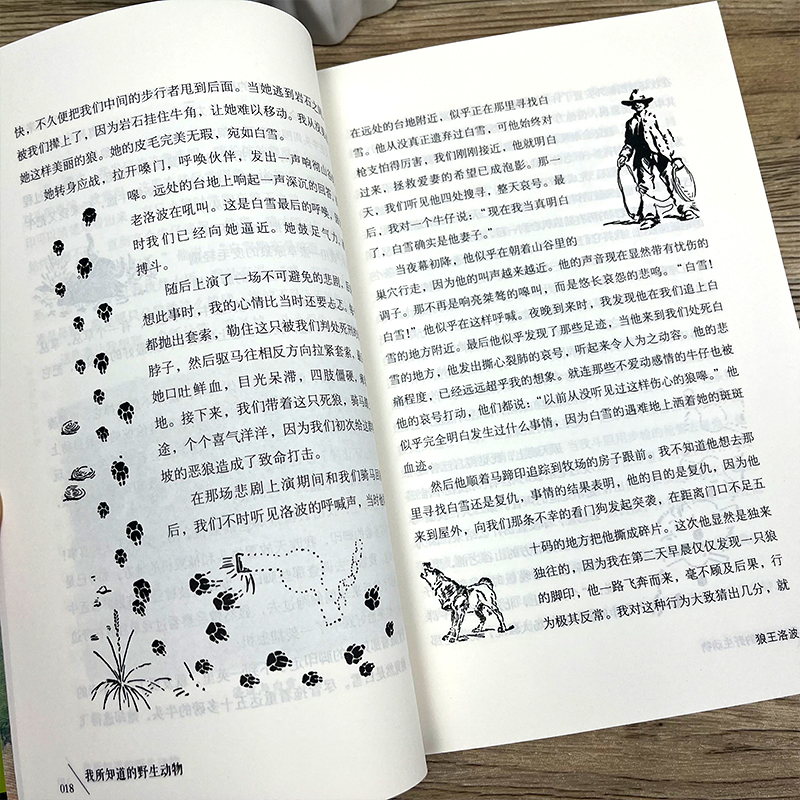 快，不久便把我们中间的步行者甩到后面。当她逃到岩石之
被我们撵上了，因为岩石挂住牛角，让她难以移动。我从没
她这样美丽的狼。她的皮毛完美无瑕，宛如白雪。
她转身应战，拉开嗓门，呼唤伙伴，发出一声响彻山
嗥。远处的台地上响起一声深沉的回答
老洛波在吼叫。这是白雪最后的呼唤，
时我们已经向她逼近。她鼓足气力，
搏斗。
随后上演了一场不可避免的悲剧，后
想此事时，我的心情比当时还要忐忑。每
都抛出套索，勒住这只被我们判处死刑
脖子，然后驱马往相反方向拉紧套索，
她口吐鲜血，目光呆滞，四肢僵硬，
地。接下来，我们带着这只死狼，骑马
途，个个喜气洋洋，因为我们初次给这
坡的恶狼造成了致命打击。
在那场悲剧上演期间和我们骑马回
后，我们不时听见洛波的呼喊声，当时他
018
我所知道的野生动物
在远处的台地附近，似乎正在那里寻找白
雪。他从没真正遗弃过白雪，可他始终对
枪支怕得厉害，我们刚刚接近，他就明白
过来，拯救爱妻的希望已成泡影。那一
天，我们听见他四处搜寻，整天哀号。最
后，我对一个牛仔说：“现在我当真明白
了，白雪确实是他妻子。”
当夜幕初降，他似乎在朝着山谷里的
巢穴行走，因为他的叫声越来越近。他的声音现在显然带有忧伤的
调子。那不再是响亮桀骜的嗥叫，而是悠长哀怨的悲鸣。“白雪！
白雪！”他似乎在这样呼喊。夜晚到来时，我发现他在我们追上白
雪的地方附近。最后他似乎发现了那些足迹，当他来到我们处死白
雪的地方，他发出撕心裂肺的哀号，听起来令人为之动容。他的悲
痛程度，已经远远超乎我的想象。就连那些不爱动感情的牛仔也被
他的哀号打动，他们都说：“以前从没听见过这样伤心的狼嗥。”他
似乎完全明白发生过什么事情，因为白雪的遇难地上洒着她的斑斑
血迹。
然后他顺着马蹄印追踪到牧场的房子跟前。我不知道他想去那
里寻找白雪还是复仇，事情的结果表明，他的目的是复仇，因为他
来到屋外，向我们那条不幸的看门狗发起突袭，在距离门口不足五
十码的地方把他撕成碎片。这次他显然是独来
独往的，因为我在第二天早晨仅仅发现一只狼
的脚印，他一路飞奔而来，毫不顾及后果，行
为极其反常。我对这种行为大致猜出几分，就
狼王洛波